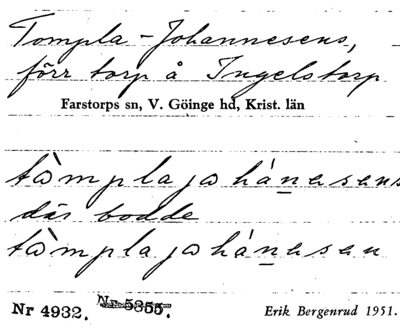 Tompla-Johannesens,
förr torp å Ingelstorp
Farstorps sn, V. Göinge hd, Krist. län
tὼmplajohánesens
där bodde
tὼmplajohánesen
Nr 4932. Nr 5355.
Erik Bergenrud 1951.